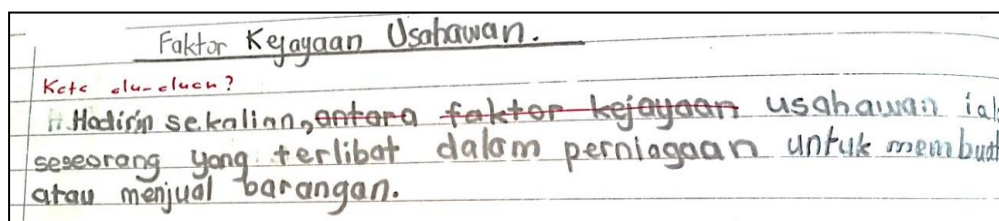 Faktor Kejayaan Usahawan.
Kata alu-aluan?
Hadirin sekalian, antara faktor kejayaan usahawan ial
seseorang yang terlibat dalam perniagaan untuk membuat
atau menjual barangan.